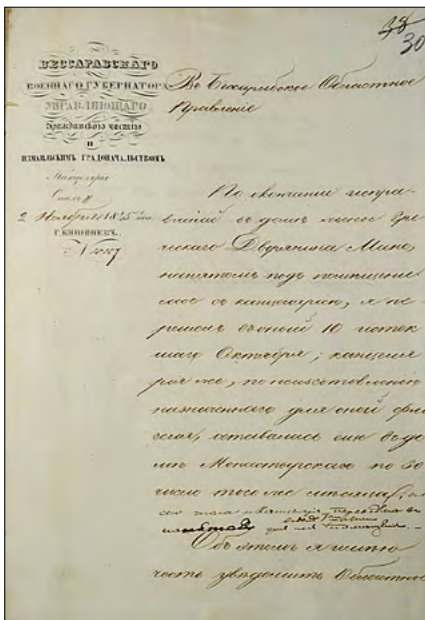 38
30
БЕССАРАБСКАГО
ВОЕННАГО ГУБЕРНАТОРА
УПРАВЛЯЮЩАГО
Гражданскою частію
и
ИЗМАИЛЬСКИМЪ ГРАДОНАЧАЛЬСТВОМЪ
Канцелярія
2 Ноября 1845 года
Г. КИШИНЕВЪ.
N 10107
Въ Бессарабское Областное
Правленіе
По окончаніи исправ-
леній въ домѣ
Дворянина Мино,
нанятомъ подъ помѣщеніе
мое съ канцеляріею, я пе-
решолъ въ оный 10 истек-
шаго Октября; канцеля
рія же, по неизготовленію
назначеннаго для оной фли
геля, оставалась еще въ до-
мѣ Монастырскаго по 30
число того же
Объ этомъ я имѣю
честь увѣдомить Областное